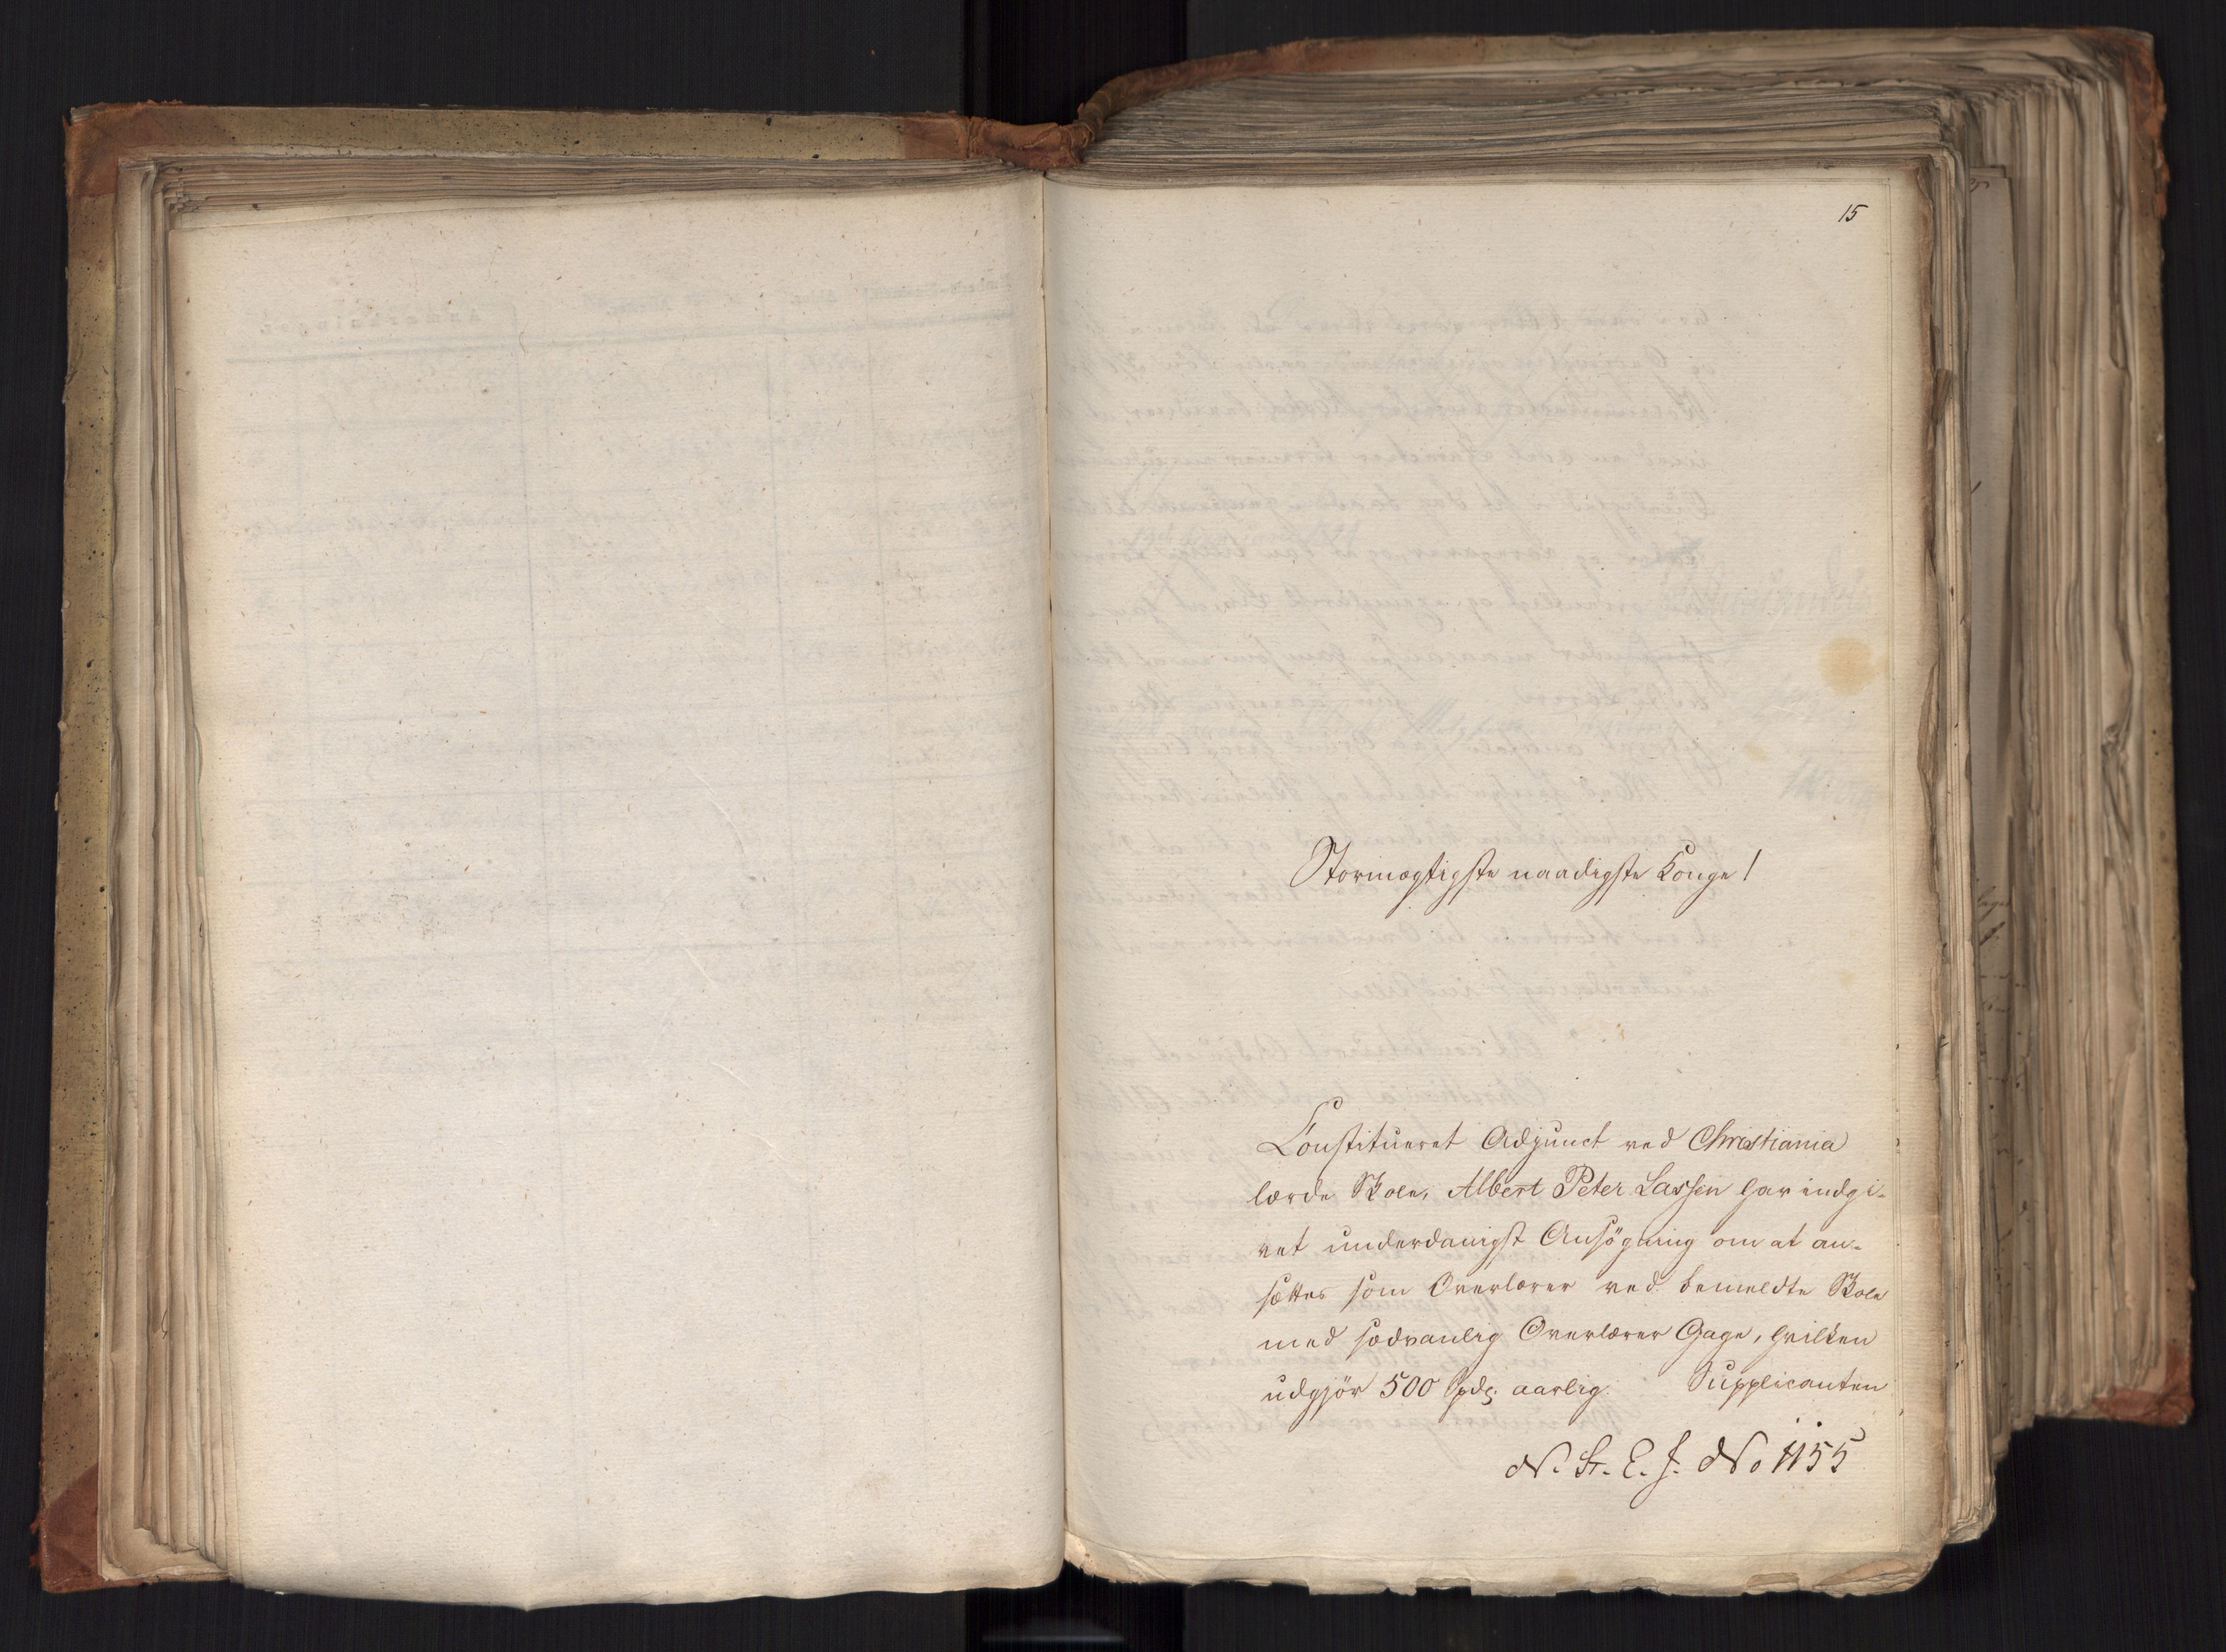 15
Stormægtigste naadigste Konge!
Constitueret Adjunct ved Christiania
lærde Skole, Albert Peter Lassen har indgi-
vet underdanigst Ansögning om at an-
sættes som Overlærer ved bemeldte Skole
med sædvanlig Overlærer Gage, hvilken
udgjör 500 Spd. aarlig. Supplicanten
N. St. E. J. No 1155